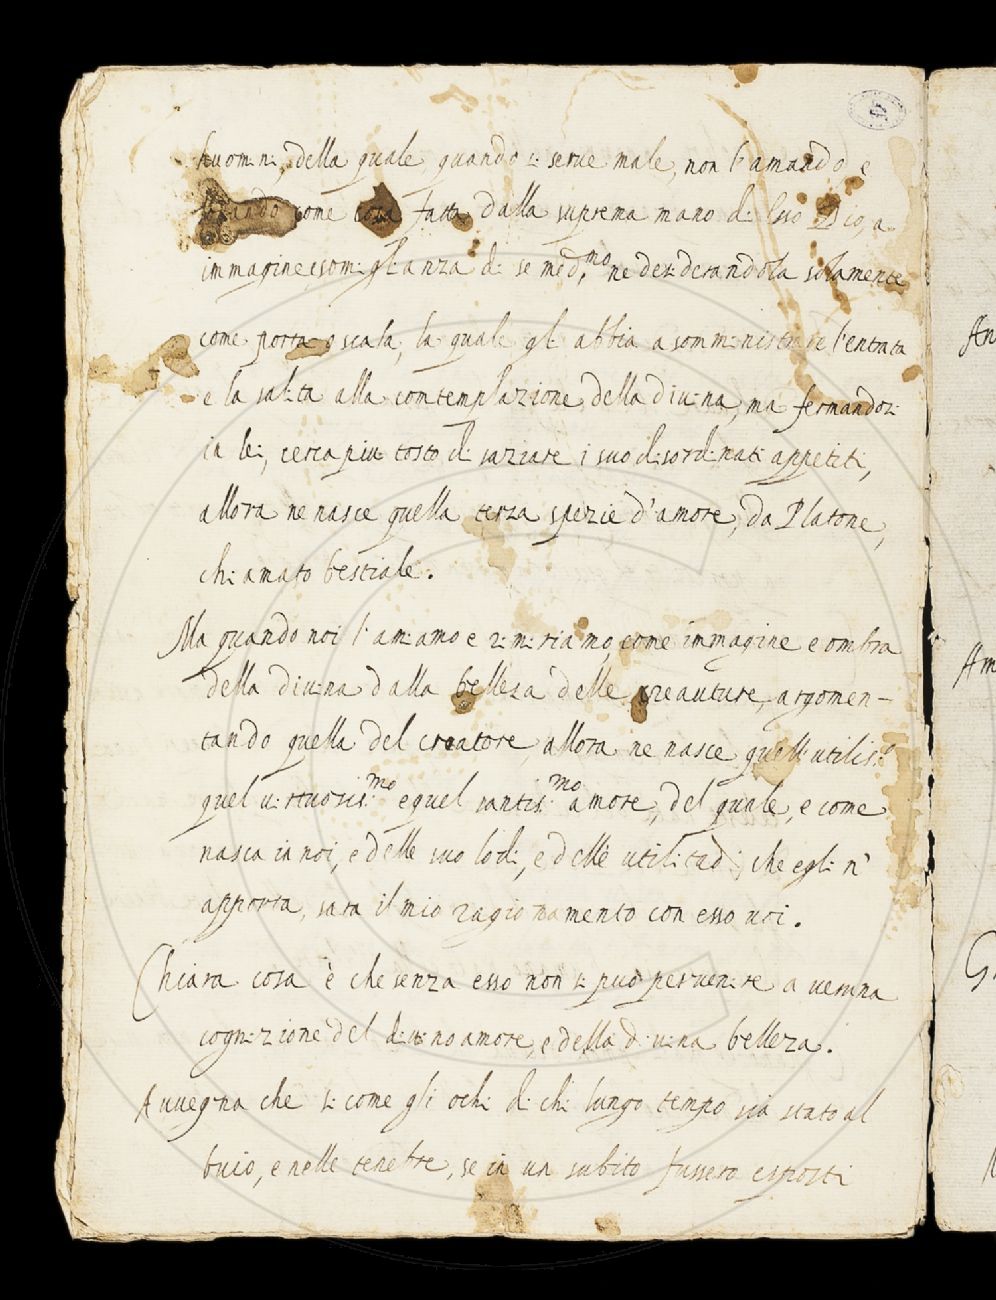 huomini, della quale, quando si serve male, non l'amando, e
come cosa fatta dalla suprema mano di esso Dio, a
immagine, e somiglianza di se med.mo ne desiderandola solamente
come porta, o scala, la quale gli abbia a somministrare l'entrata
e la salita alla contemplazione della divina, ma fermandosi
in lei, cerca piu tosto di saziare i suo disordinati appetiti,
allora ne nasce quella terza spezie d'amore, da Platone,
chiamato bestiale.
Ma quando noi l'amiamo e rimiriamo, come immagine e ombra
della divina dalla belleza delle creauture, argomen-
tando quella del creatore, allora ne nasce quell'utilis.o
quel virtuosis.mo e quel santis.mo amore, del quale, e come
nasca in noi, e delle suo lodi, e delle utilitadi, che egli n'
apporta, sara il mio ragionamento con esso voi.
Chiara cosa è che senza esso non si può pervenire a veruna
cognizione del divino amore, e della divina belleza.
Avvegna che si come gli ochi di chi lungo tempo sia stato al
buio, e nelle tenebre, se in un subito fussero esposti